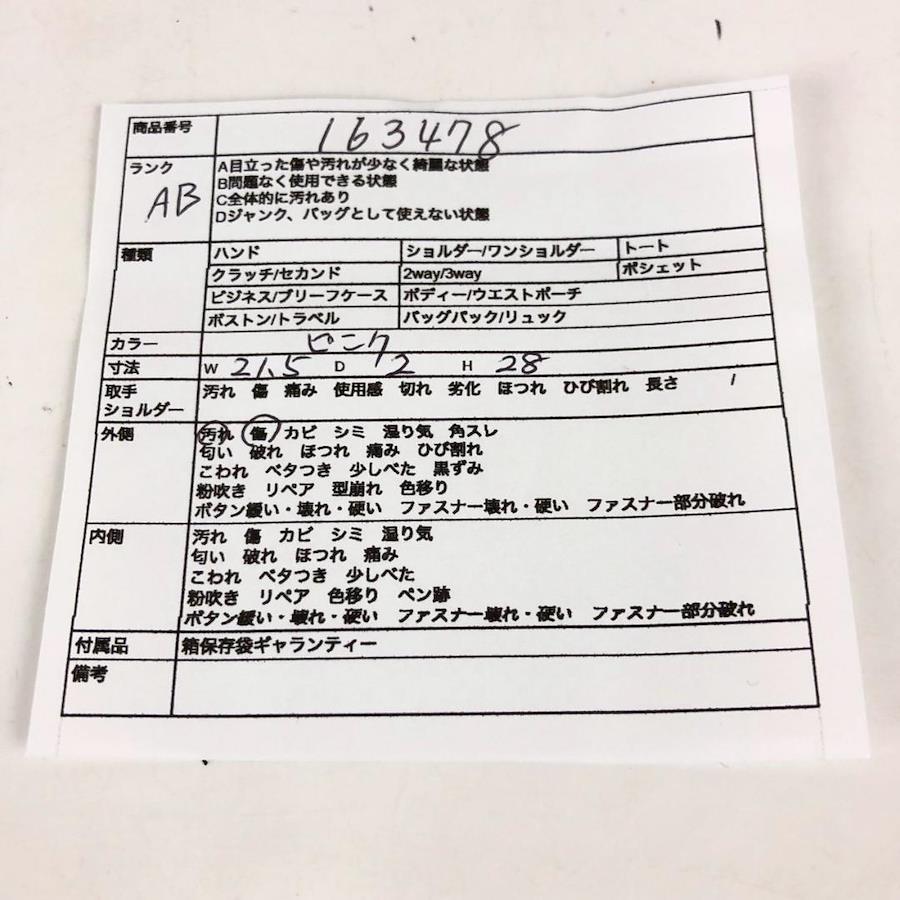 商品番号 163478
ランク AB
A目立った傷や汚れが少なく綺麗な状態
B問題なく使用できる状態
C全体的に汚れあり
Dジャンク、バッグとして使えない状態
種類 ハンド ショルダー/ワンショルダー トート
クラッチ/セカンド 2way/3way ポシェット
ビジネス/ブリーフケース ボディー/ウエストポーチ
ボストン/トラベル バッグパック/リュック
カラー ピンク
寸法 W 21.5 D 2 H 28
取手 汚れ 傷 痛み 使用感 切れ 劣化 ほつれ ひび割れ 長さ /
ショルダー
外側 汚れ 傷 カビ シミ 湿り気 角スレ
匂い 破れ ほつれ 痛み ひび割れ
こわれ ベタつき 少しべた 黒ずみ
粉吹き リペア 型崩れ 色移り
ボタン緩い・壊れ・硬い ファスナー壊れ・硬い ファスナー部分破れ
内側 汚れ 傷 カビ シミ 湿り気
匂い 破れ ほつれ 痛み
こわれ ベタつき 少しべた
粉吹き リペア 色移り ペン跡
ボタン緩い・壊れ・硬い ファスナー壊れ・硬い ファスナー部分破れ
付属品 箱保存袋ギャランティー
備考